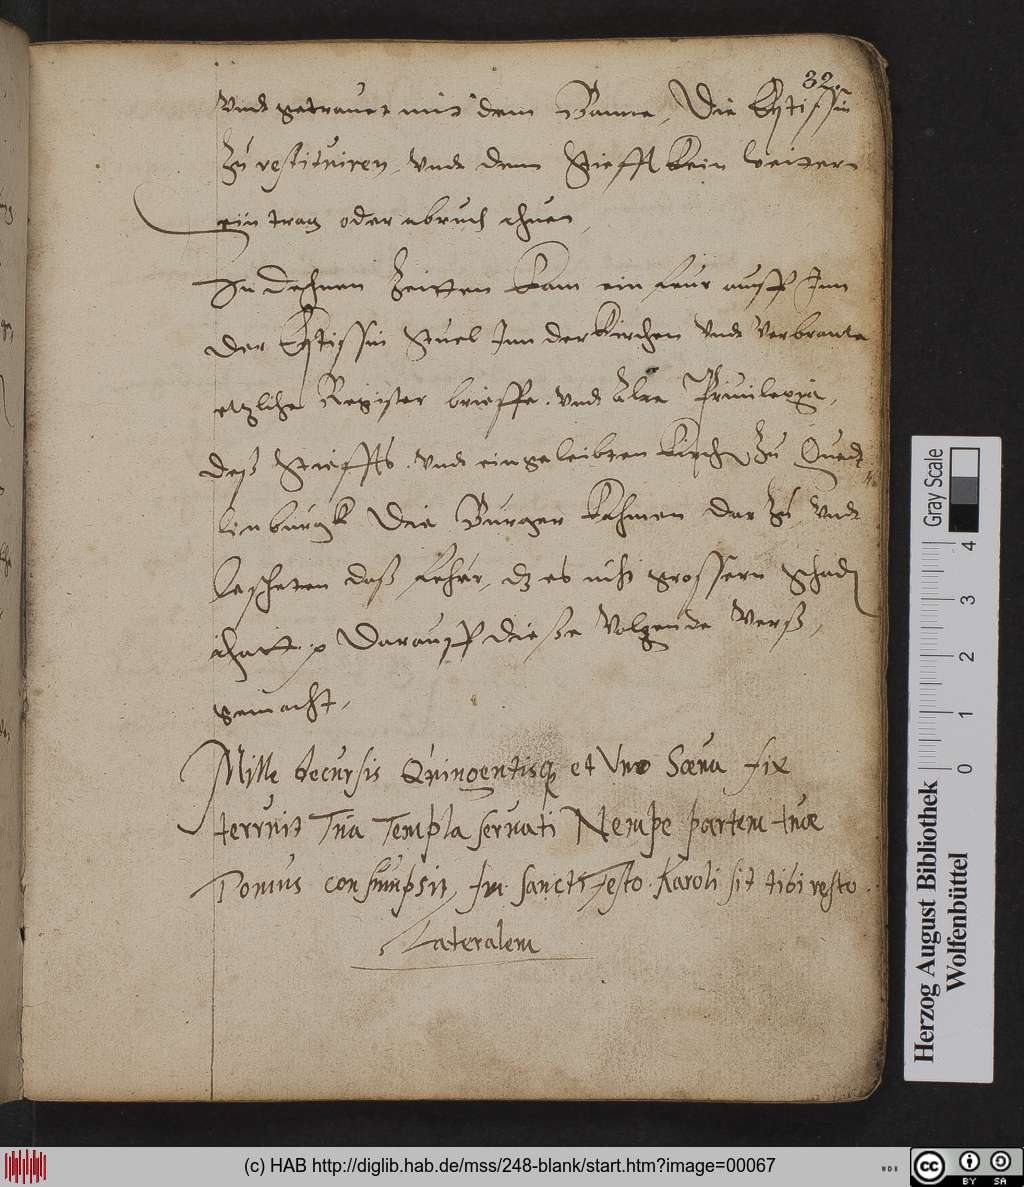 32.
Vnd getrauet mit dem Banne, Die Ebtissin
Zu restituiren, Vnd dem Stiefft kein weitern
ein trag oder abruch thuen,
In dessen Zeitten kam ein feur auff Inn
Der Ebtissin Stuel Inn der Kirchen Vnd Verbrante
etzliche Register brieffe. Vnd Alte Priuilegia,
deß Stieffts. Vnd eingeleibten Kirchen Zu Qued
linburgk Die Burger kahmen dar Zu Vnd
lescheten daß fehur, dz es nicht grossern schaden
thatt. Darauff diesse Volgende Verß,
gemacht,
Mille decursis Quingentisq et Vno Sæua
terruit Tua Templa seruati Nempe partem tuæ
Domus consumpsit, In sancti Festo Karoli sit tibi resto
Lateralem
4 3 2 1 0 Gray Scale
Herzog August Bibliothek
Wolfenbüttel
(c) HAB http://diglib.hab.de/mss/248-blank/start.htm?image=00067
WDB
cc BY SA